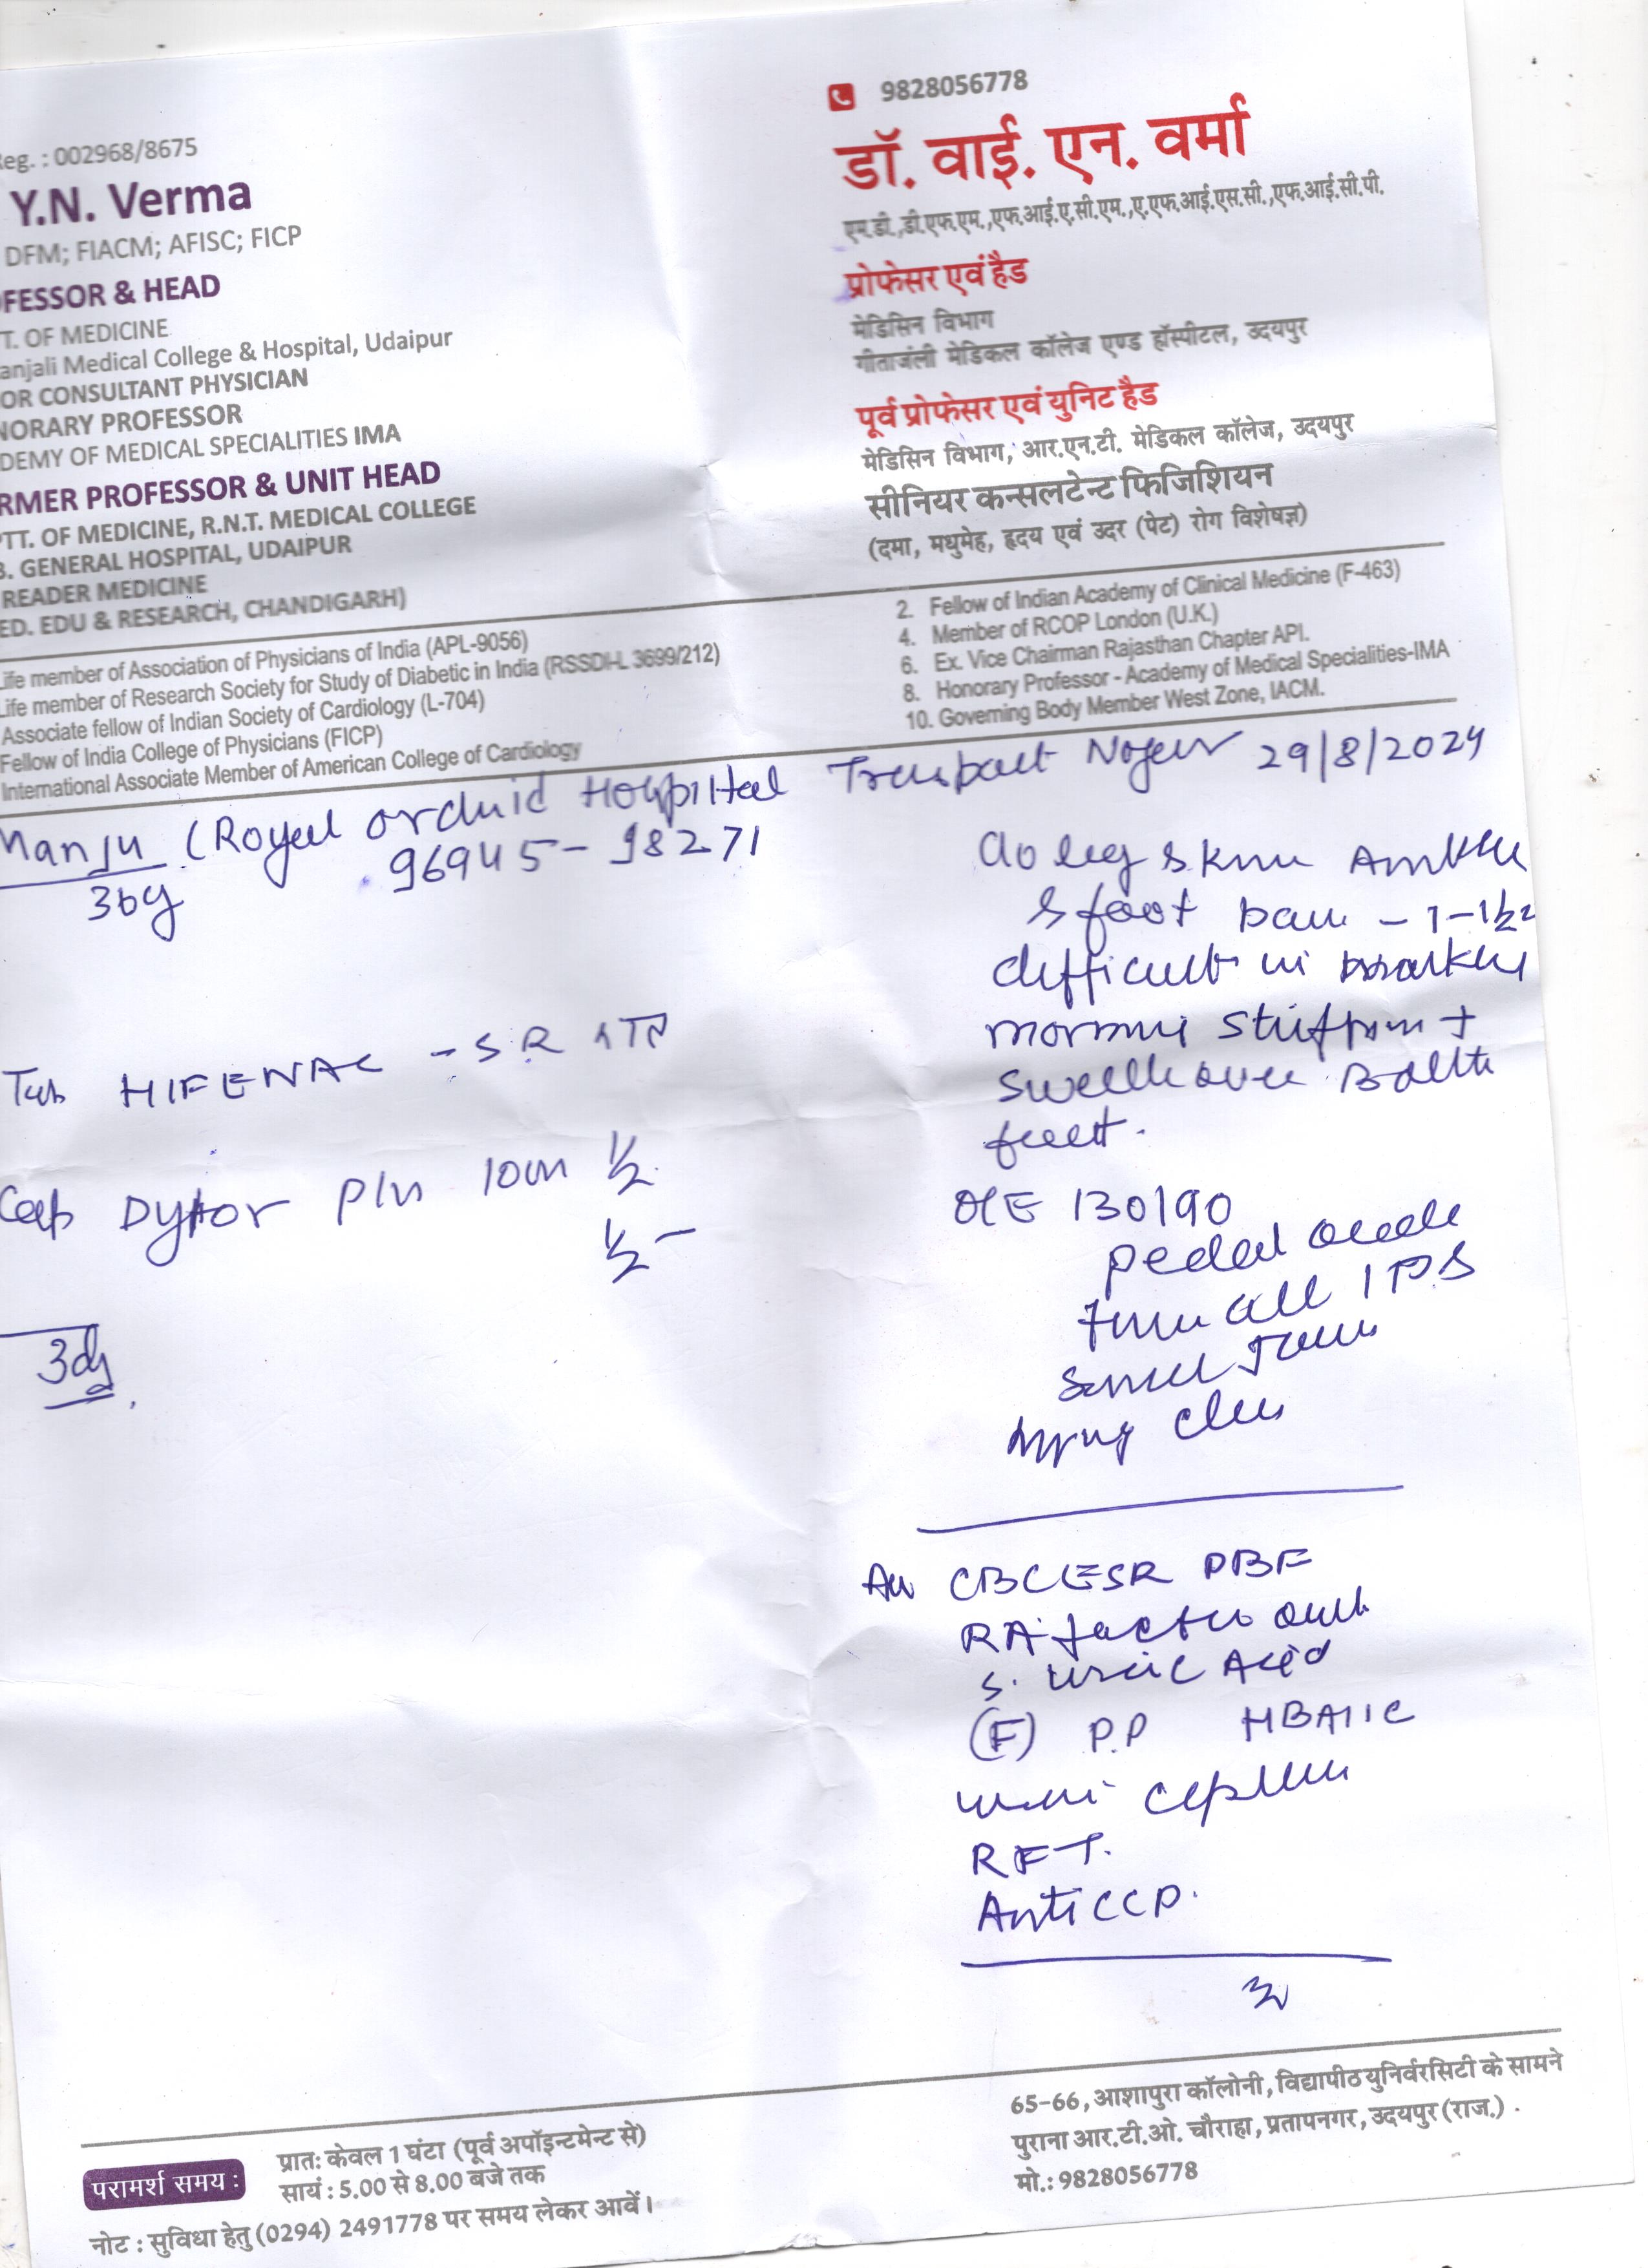 9828056778
Reg. : 002968/8675
Y.N. Verma
DFM; FIACM; AFISC; FICP
FESSOR & HEAD
T. OF MEDICINE
anjali Medical College & Hospital, Udaipur
OR CONSULTANT PHYSICIAN
NORARY PROFESSOR
DEMY OF MEDICAL SPECIALITIES IMA
RMER PROFESSOR & UNIT HEAD
TT. OF MEDICINE, R.N.T. MEDICAL COLLEGE
B. GENERAL HOSPITAL, UDAIPUR
READER MEDICINE
ED. EDU & RESEARCH, CHANDIGARH)
डॉ. वाई. एन. वर्मा
एम.डी.,डी.एफ.एम.,एफ.आई.ए.सी.एम.,ए.एफ.आई.एस.सी.,एफ.आई.सी.पी.
प्रोफेसर एवं हैड
मेडिसिन विभाग
गीताजंली मेडिकल कॉलेज एण्ड हॉस्पीटल, उदयपुर
पूर्व प्रोफेसर एवं युनिट हैड
मेडिसिन विभाग, आर.एन.टी. मेडिकल कॉलेज, उदयपुर
सीनियर कन्सलटेन्ट फिजिशियन
(दमा, मधुमेह, हृदय एवं उदर (पेट) रोग विशेषज्ञ)
Life member of Association of Physicians of India (APL-9056)
Life member of Research Society for Study of Diabetic in India (RSSDI-L 3699/212)
Associate fellow of Indian Society of Cardiology (L-704)
Fellow of India College of Physicians (FICP)
International Associate Member of American College of Cardiology
2. Fellow of Indian Academy of Clinical Medicine (F-463)
4. Member of RCOP London (U.K.)
6. Ex. Vice Chairman Rajasthan Chapter API.
8. Honorary Professor - Academy of Medical Specialities-IMA
10. Governing Body Member West Zone, IACM.
Manju (Royal orchid Hospital Transport Nager 29/8/2024
36y 96945-98271
Tab HIFENAC - SR
Cap Dytor Plus 10 1/2
1/2 -
3dy
c/o leg
& foot pain - 1-1½
difficult in
morning stiffness +
swelling over Both
feet.
O/E 130/90
pedal
all
CBC ESR PBF
RA factor
S. Uric Acid
(F) P.P HBA1C
urine
RFT.
Anti CCP.
परामर्श समय :
प्रातः केवल 1 घंटा (पूर्व अपॉइन्टमेन्ट से)
सायं : 5.00 से 8.00 बजे तक
नोट : सुविधा हेतु (0294) 2491778 पर समय लेकर आवें।
65-66, आशापुरा कॉलोनी, विद्यापीठ युनिर्वरसिटी के सामने
पुराना आर.टी.ओ. चौराहा, प्रतापनगर, उदयपुर (राज.) .
मो.: 9828056778